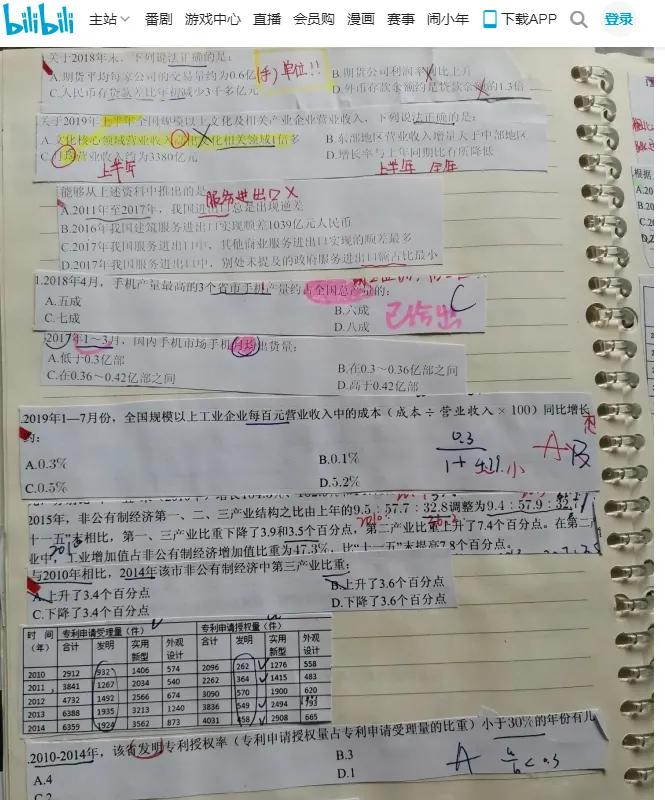 bilibili 主站 番剧 游戏中心 直播 会员购 漫画 赛事 闹小年 下载APP 登录
关于2018年末，下列说法正确的是：
A.期货平均每家公司的交易量约为0.6亿(手)单位!! B.期货公司利润率同比上升
C.人民币存贷款差比年初减少3千多亿元 D.外币存款余额约是贷款余额的1.3倍
关于2019年上半年全国规模以上文化及相关产业企业营业收入，下列说法正确的是：
A.文化核心领域营业收入 文化相关领域1倍多 B.东部地区营业收入增量大于中部地区
C.月均营业收入约为3380亿元 D.增长率与上年同期比有所降低
上半年 上半年 全年
能够从上述资料中推出的是 服务进出口X
A.2011年至2017年，我国进出口总是出现逆差
B.2016年我国建筑服务进出口实现顺差1039亿元人民币
C.2017年我国服务进出口中，其他商业服务进出口实现的顺差最多
D.2017年我国服务进出口中，别处未提及的政府服务进出口额占比最小
1.2018年4月，手机产量最高的3个省市手机产量约占全国总产量的： C
A.五成 B.六成
C.七成 D.八成 已给出
2017年1～3月，国内手机市场手机月均出货量：
A.低于0.3亿部 B.在0.3～0.36亿部之间
C.在0.36～0.42亿部之间 D.高于0.42亿部
.2019年1—7月份，全国规模以上工业企业每百元营业收入中的成本（成本÷营业收入×100）同比增长
约：
A.0.3% B.0.1%
C.0.5% D.5.2%
2015年，非公有制经济第一、二、三产业结构之比由上年的9.5：57.7：32.8调整为9.4：57.9：32.7
十一五"末相比，第一、三产业比重下降了3.9和3.5个百分点，第二产业比重上升了7.4个百分点。在第二
业中，工业增加值占非公有制经济增加值比重为47.3%，比"十一五"末提高7.8个百分点。
与2010年相比，2014年该市非公有制经济中第三产业比重：
A.上升了3.4个百分点 B.上升了3.6个百分点
C.下降了3.4个百分点 D.下降了3.6个百分点
时间（年） 专利申请受理量（件） 专利申请授权量（件）
合计 发明 实用新型 外观设计 合计 发明 实用新型 外观设计
2010 2912 932 1406 574 2096 262 1276 558
2011 3841 1267 2034 540 2262 364 1415 483
2012 4732 1492 2566 674 3090 570 1900 620
2013 6388 1935 3213 1240 3836 549 2494 793
2014 6359 1924 3562 873 4031 458 2908 665
.2010-2014年，该省发明专利授权率（专利申请授权量占专利申请受理量的比重）小于30%的年份有几
A.4 B.3
C.2 D.1